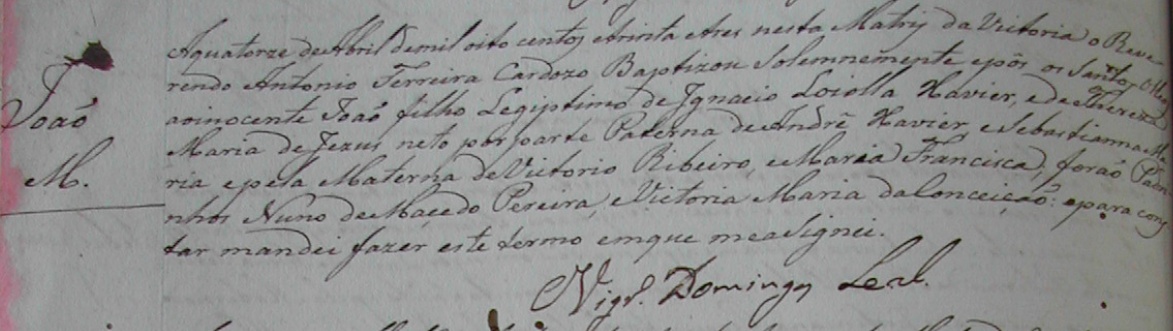 João
M.
Aquatorze deAbril demil oito centos etrinta etres nesta Matriz da Victoria o Reve
rendo Antonio Ferreira Cardozo Baptizou Solemnemente epôs os Santos
aoinocente João filho Legiptimo de Ignacio Loiolla Xavier, edeTherezа
Maria de Jezus neto porparte Paterna deAndré Xavier, eSebastianna Ma
ria epela Materna deVictorio Ribeiro, eMaria Francisca, forão Padri
nhos Nuno deMacedo Pereira, eVictoria Maria daConceição: epara cons
tar mandei fazer este termo emque meaSignei.
Vigr.º Domingos Leal.